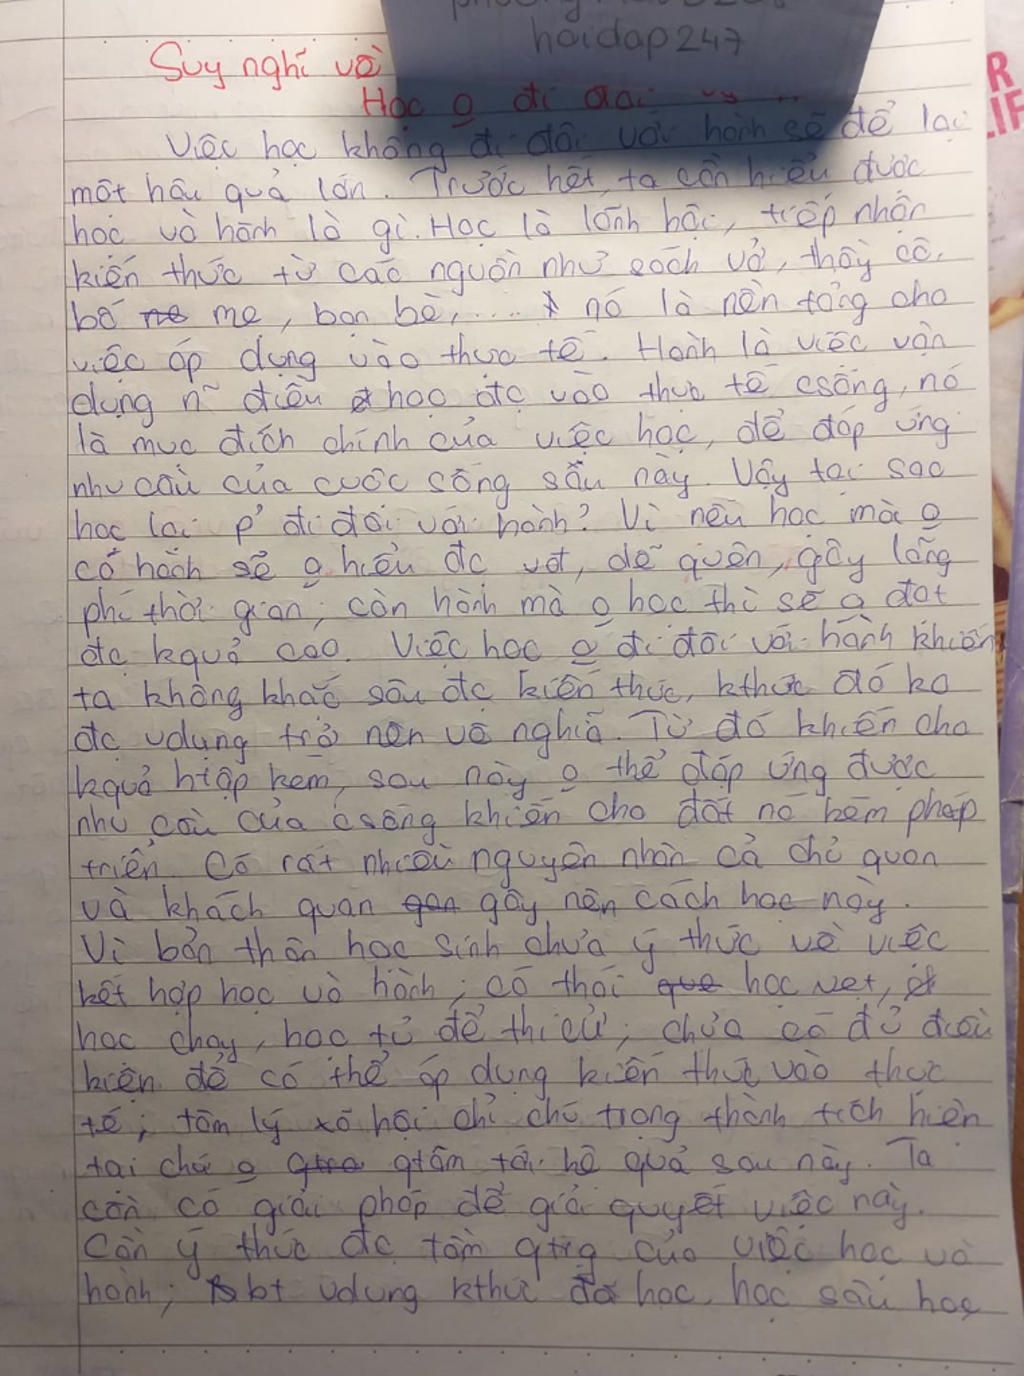 hoidap247
Suy nghĩ về
Học o đi đôi
Việc học không đi đôi với hành sẽ để lại
một hậu quả lớn. Trước hết, ta cần hiểu được
học và hành là gì. Học là lĩnh hội, tiếp nhận
kiến thức từ các nguồn như sách vở, thầy cô,
bố me mẹ, bạn bè,... nó là nền tảng cho
việc áp dụng vào thực tế. Hành là việc vận
dụng n~ điều học đc vào thực tế csống, nó
là mục đích chính của việc học, để đáp ứng
nhu cầu của cuộc sống sau này. Vậy tại sao
học lại p' đi đôi với hành? Vì nếu học mà o
có hành sẽ o hiểu đc vđ, dễ quên, gây lãng
phí thời gian; còn hành mà o học thì sẽ o đạt
đc kquả cao. Việc học o đi đôi với hành khiến
ta không khắc sâu đc kiến thức, kthức đó ko
đc vdụng trở nên vô nghĩa. Từ đó khiến cho
kquả htập kém, sau này o thể đáp ứng được
nhu cầu của csống khiến cho đất nc kém phát
triển. Có rất nhiều nguyên nhân cả chủ quan
và khách quan gan gây nên cách học này.
Vì bản thân học sinh chưa ý thức về việc
kết hợp học và hành; có thói que học vẹt,
học chay, học tủ để thi cử; chưa có đủ điều
kiện để có thể áp dụng kiến thức vào thực
tế; tâm lý xã hội chỉ chú trọng thành tích hiện
tại chứ o qtâm tới hệ quả sau này. Ta
cần có giải pháp để giải quyết việc này.
Cần ý thức đc tầm qtrg của việc học và
hành; bt vdụng kthức đã học, học sâu học